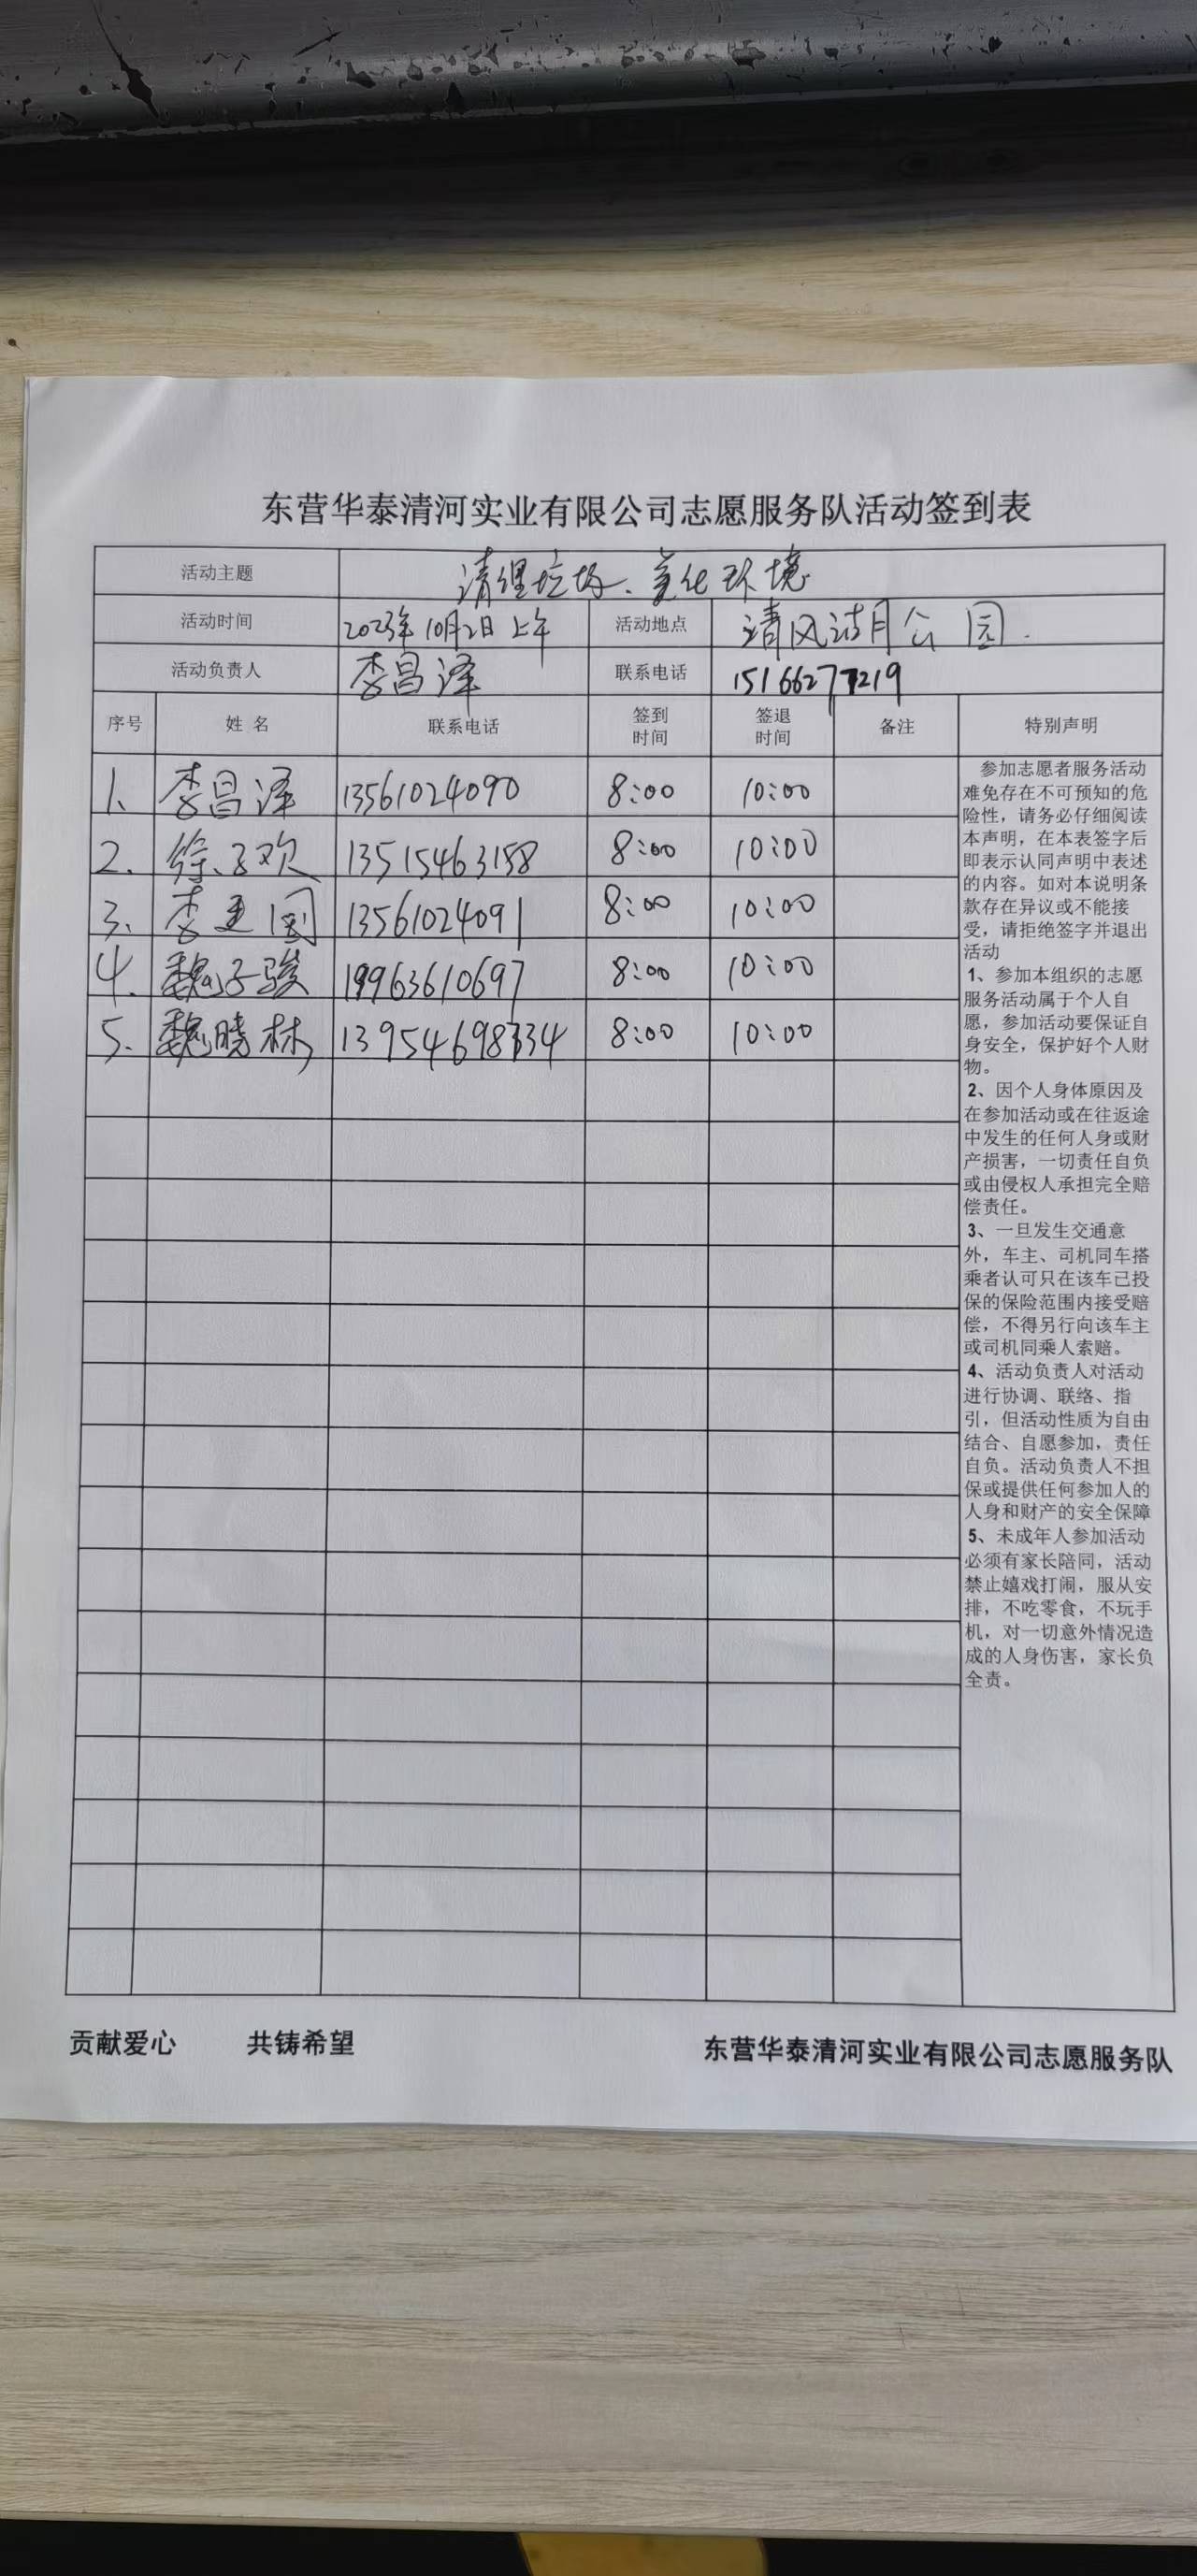 东营华泰清河实业有限公司志愿服务队活动签到表
活动主题 清理垃圾、美化环境
活动时间 2023年10月2日上午 活动地点 清风洁月公园.
活动负责人 李昌泽 联系电话 15166277219
序号 姓名 联系电话 签到时间 签退时间 备注 特别声明
1、 李昌泽 13561024090 8:00 10:00
2、 徐子欢 13515463158 8:00 10:00
3、 李建国 13561024091 8:00 10:00
4. 魏子骏 19963610697 8:00 10:00
5. 魏晓林 13954698334 8:00 10:00
参加志愿者服务活动
难免存在不可预知的危
险性，请务必仔细阅读
本声明，在本表签字后
即表示认同声明中表述
的内容。如对本说明条
款存在异议或不能接
受，请拒绝签字并退出
活动
1、参加本组织的志愿
服务活动属于个人自
愿，参加活动要保证自
身安全，保护好个人财
物。
2、因个人身体原因及
在参加活动或在往返途
中发生的任何人身或财
产损害，一切责任自负
或由侵权人承担完全赔
偿责任。
3、一旦发生交通意
外，车主、司机同车搭
乘者认可只在该车已投
保的保险范围内接受赔
偿，不得另行向该车主
或司机同乘人索赔。
4、活动负责人对活动
进行协调、联络、指
引，但活动性质为自由
结合、自愿参加，责任
自负。活动负责人不担
保或提供任何参加人的
人身和财产的安全保障
5、未成年人参加活动
必须有家长陪同，活动
禁止嬉戏打闹，服从安
排，不吃零食，不玩手
机，对一切意外情况造
成的人身伤害，家长负
全责。
贡献爱心 共铸希望 东营华泰清河实业有限公司志愿服务队